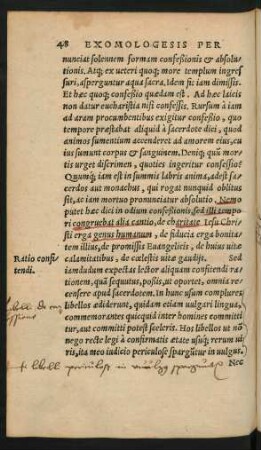 48 EXOMOLOGESIS PER
nunciat solennem formam confeſsionis & abſolu-
tionis. Atq; ex ueteri quoq; more templum ingreſ
ſuri, aſperguntur aqua ſacra. Idem fit iam dimiſsis.
Et hæc quoq; confeſsio quædam eſt. Ad hæc laicis
non datur euchariſtia niſi confeſsis. Rurſum à iam
ad aram procumbentibus exigitur confeſsio, quo
tempore præſtabat aliquid à ſacerdote dici, quod
animos ſumentium accenderet ad amorem eius, cu
ius ſumunt corpus & ſanguinem. Deniq; quū mor
tis urget diſcrimen, quoties ingeritur confeſsio?
Quumq; iam eſt in ſummis labris anima, adeſt ſa
cerdos aut monachus, qui rogat nunquid oblitus
ſit, ac iam mortuo pronunciatur abſolutio. Nemo
putet hæc dici in odium confeſsionis, ſed illi tempo
ri congruebat alia cantio, de charitate Ieſu Chri
ſti erga genus humanum, de fiducia bonita
tem illius, de promiſsis Euangelicis, de huius uitæ
calamitatibus, de cœleſtis uitæ gaudijs. Sed
Ratio confi
tendi.
iamdudum expectas lector aliquam confitendi ra
tionem, quā ſequitus, poſsis, ut oportet, omnia re
cenſere apud ſacerdotem. In hunc uſum complures
libellos ædiderunt, quidam etiam uulgari lingua,
commemorantes quicquid inter homines committi
tur, aut committi poteſt ſceleris. Hos libellos ut nō
nego recte legi à confirmatis ætate uſuq; rerum ui
ris, ita meo iudicio periculoſe ſpargūtur in uulgus.
Nec